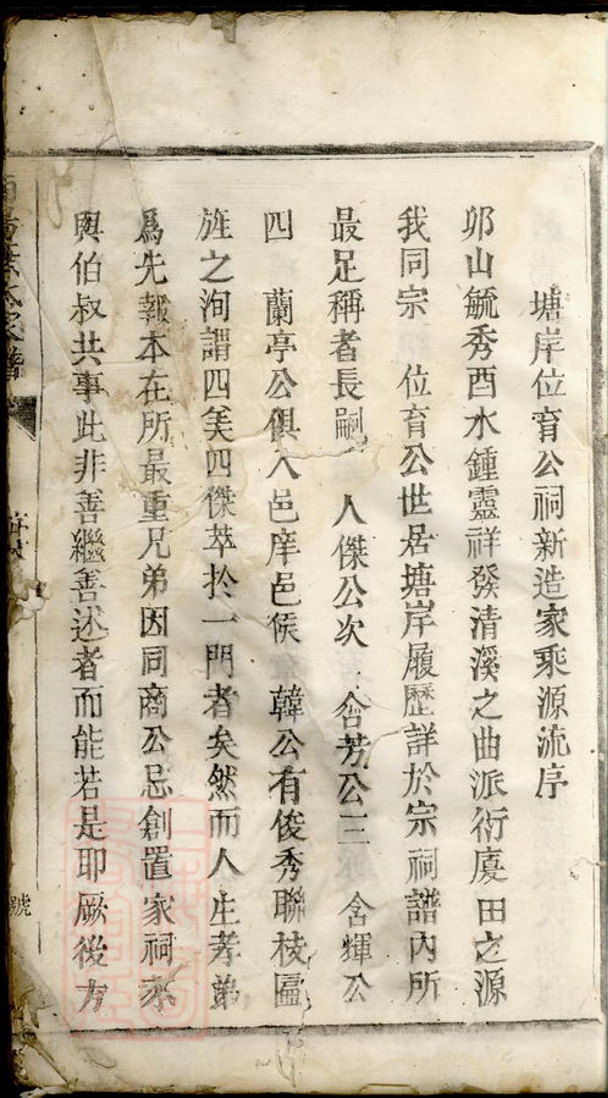 塘岸位育公祠新造家乘源流序
卯山毓秀酉水鍾靈祥發清溪之曲派衍廈田之源
我同宗 位育公世居塘岸履歷詳於宗祠譜內所
最足稱者長嗣 人傑公次 含芳公三 含輝公
四 蘭亭公俱入邑庠邑侯 韓公有俊秀聯枝匾
旌之洵謂四美四傑萃於一門者矣然而人生孝弟
為先報本在所最重兄弟因同商公忌創置家祠
與伯叔共事此非善繼善述者而能若是耶厥後方
氏家譜
號